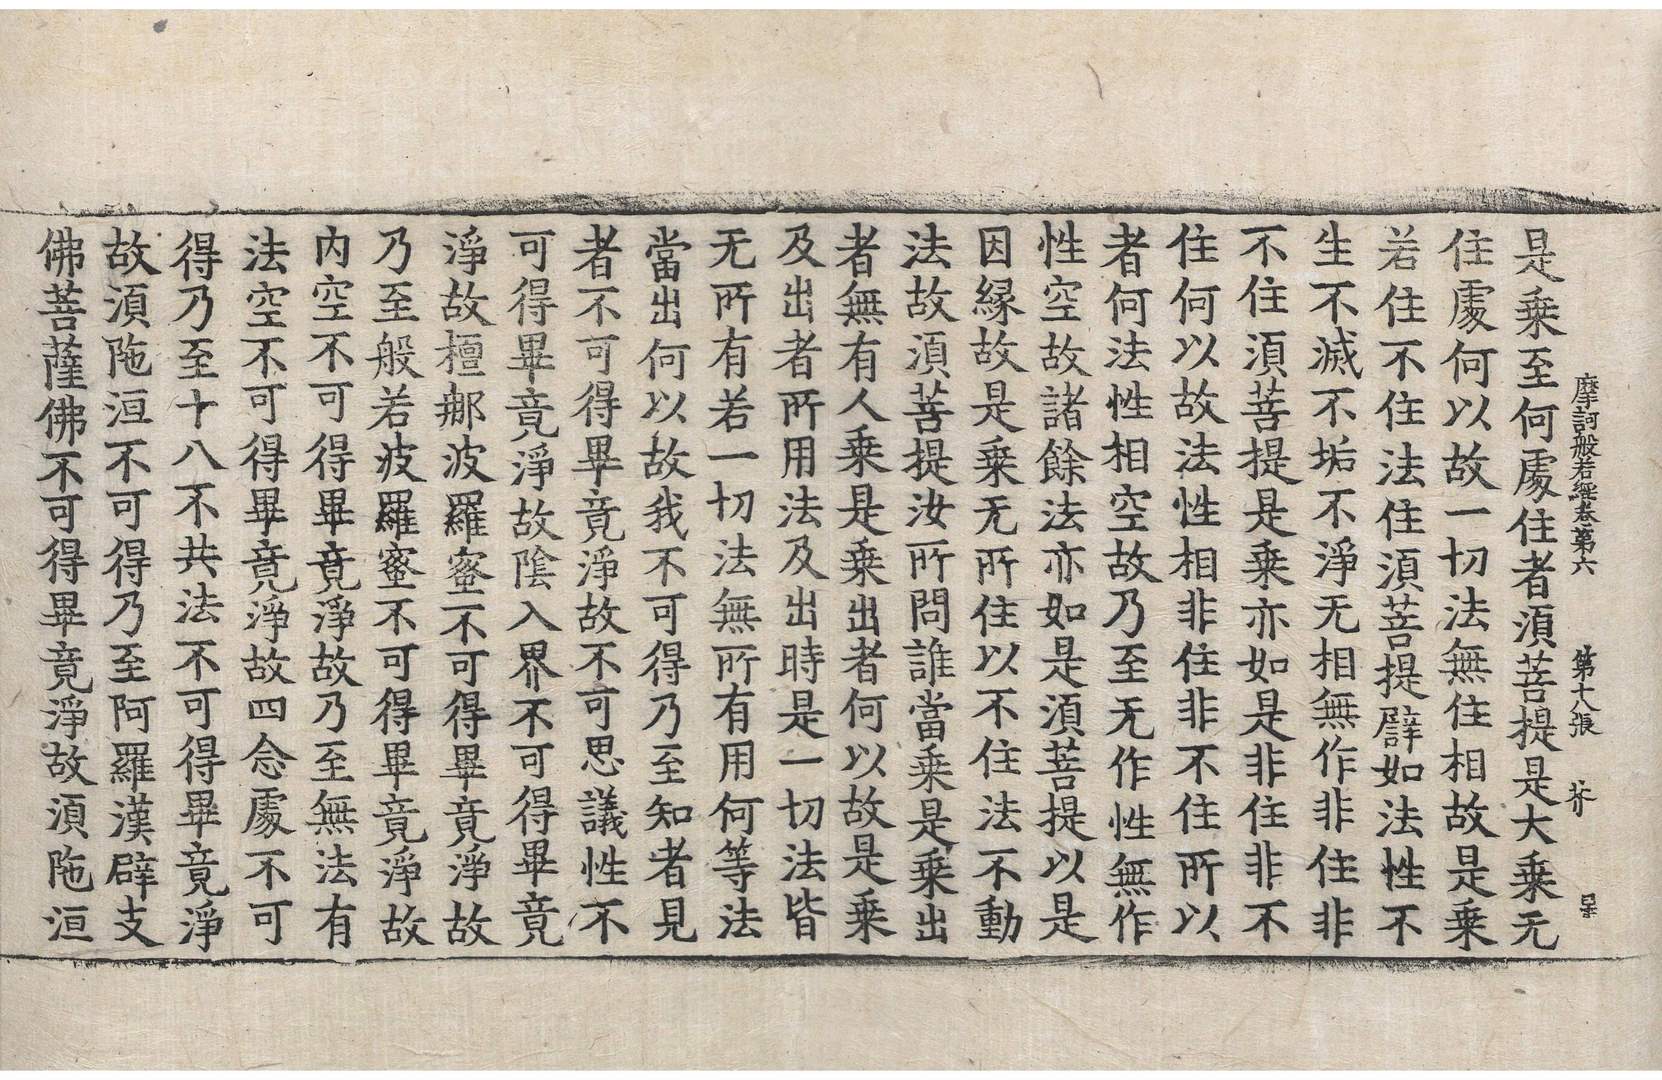 摩訶般若經卷第六 第十八張 芥
是乗至何處住者湏菩提是大乗无
住處何以故一切法無住相故是乗
若住不住法住湏菩提譬如法性不
生不滅不垢不淨无相無作非住非
不住湏菩提是乗亦如是非住非不
住何以故法性相非住非不住所以
者何法性相空故乃至无作性無作
性空故諸餘法亦如是湏菩提以是
因縁故是乗无所住以不住法不動
法故湏菩提汝所問誰當乗是乗出
者無有人乗是乗出者何以故是乗
及出者所用法及出時是一切法皆
无所有若一切法無所有用何等法
當出何以故我不可得乃至知者見
者不可得畢竟淨故不可思議性不
可得畢竟淨故陰入界不可得畢竟
淨故檀那波羅蜜不可得畢竟淨故
乃至般若波羅蜜不可得畢竟淨故
内空不可得畢竟淨故乃至無法有
法空不可得畢竟淨故四念處不可
得乃至十八不共法不可得畢竟淨
故湏陁洹不可得乃至阿羅漢辟支
佛菩薩佛不可得畢竟淨故湏陁洹